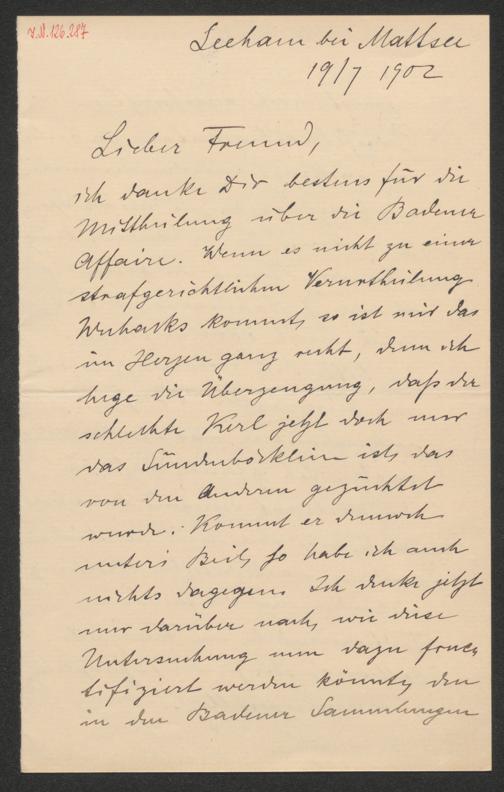 J.N. 126.287
Seeham bei Mattsee
19/7 1902
Lieber Freund,
ich danke Dir bestens für die
Mittheilung über die Badener
Affaire. Wenn es nicht zu einer
strafgerichtlichen Verurtheilung
kommt, so ist mir das
im Herzen ganz recht, denn ich
hege die Überzeugung, daß der
schlechte Kerl jetzt doch nur
das Sündenböcklein ist, das
von den Anderen gezüchtet
wurde. Kommt er dennoch
unter's Beil, so habe ich auch
nichts dagegen. Ich denke jetzt
nur darüber nach, wie diese
Untersuchung nun dazu fruc-
tifiziert werden könnte, den
in den Badener Sammlungen